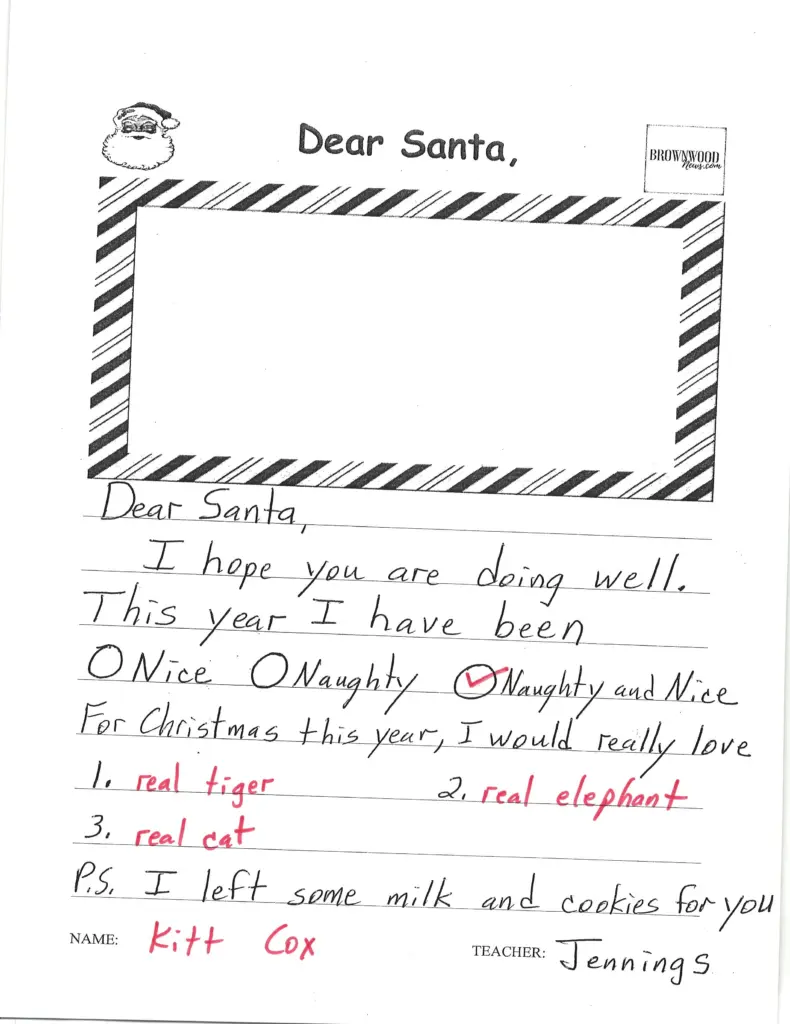 Dear Santa,
BROWNWOOD
News.com
Dear Santa,
I hope you are doing well.
This year I have been
Nice Naughty Naughty and Nice
For Christmas this year, I would really love
1. real tiger 2. real elephant
3. real cat
P.S. I left some milk and cookies for you
NAME: Kitt Cox TEACHER: Jennings